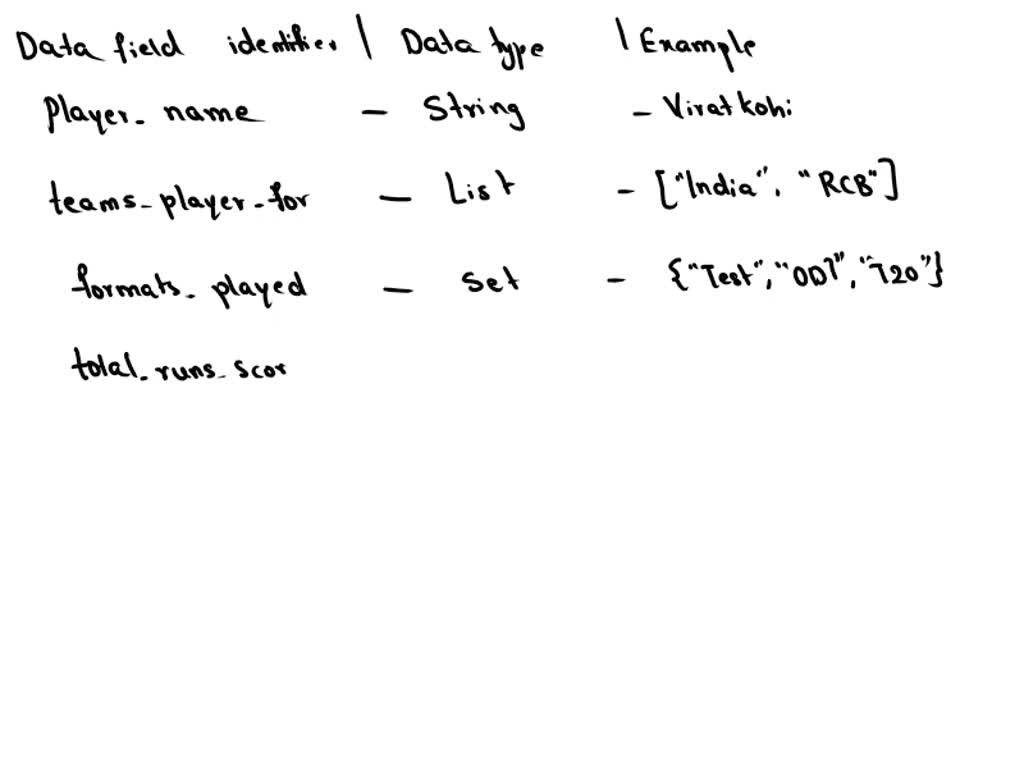 Data field identifier | Data type | Example
Player_name - String - Virat kohi
teams_player_for - List - ["India", "RCB"]
formats_played - Set - {"Test", "ODI", "T20"}
total_runs_scor